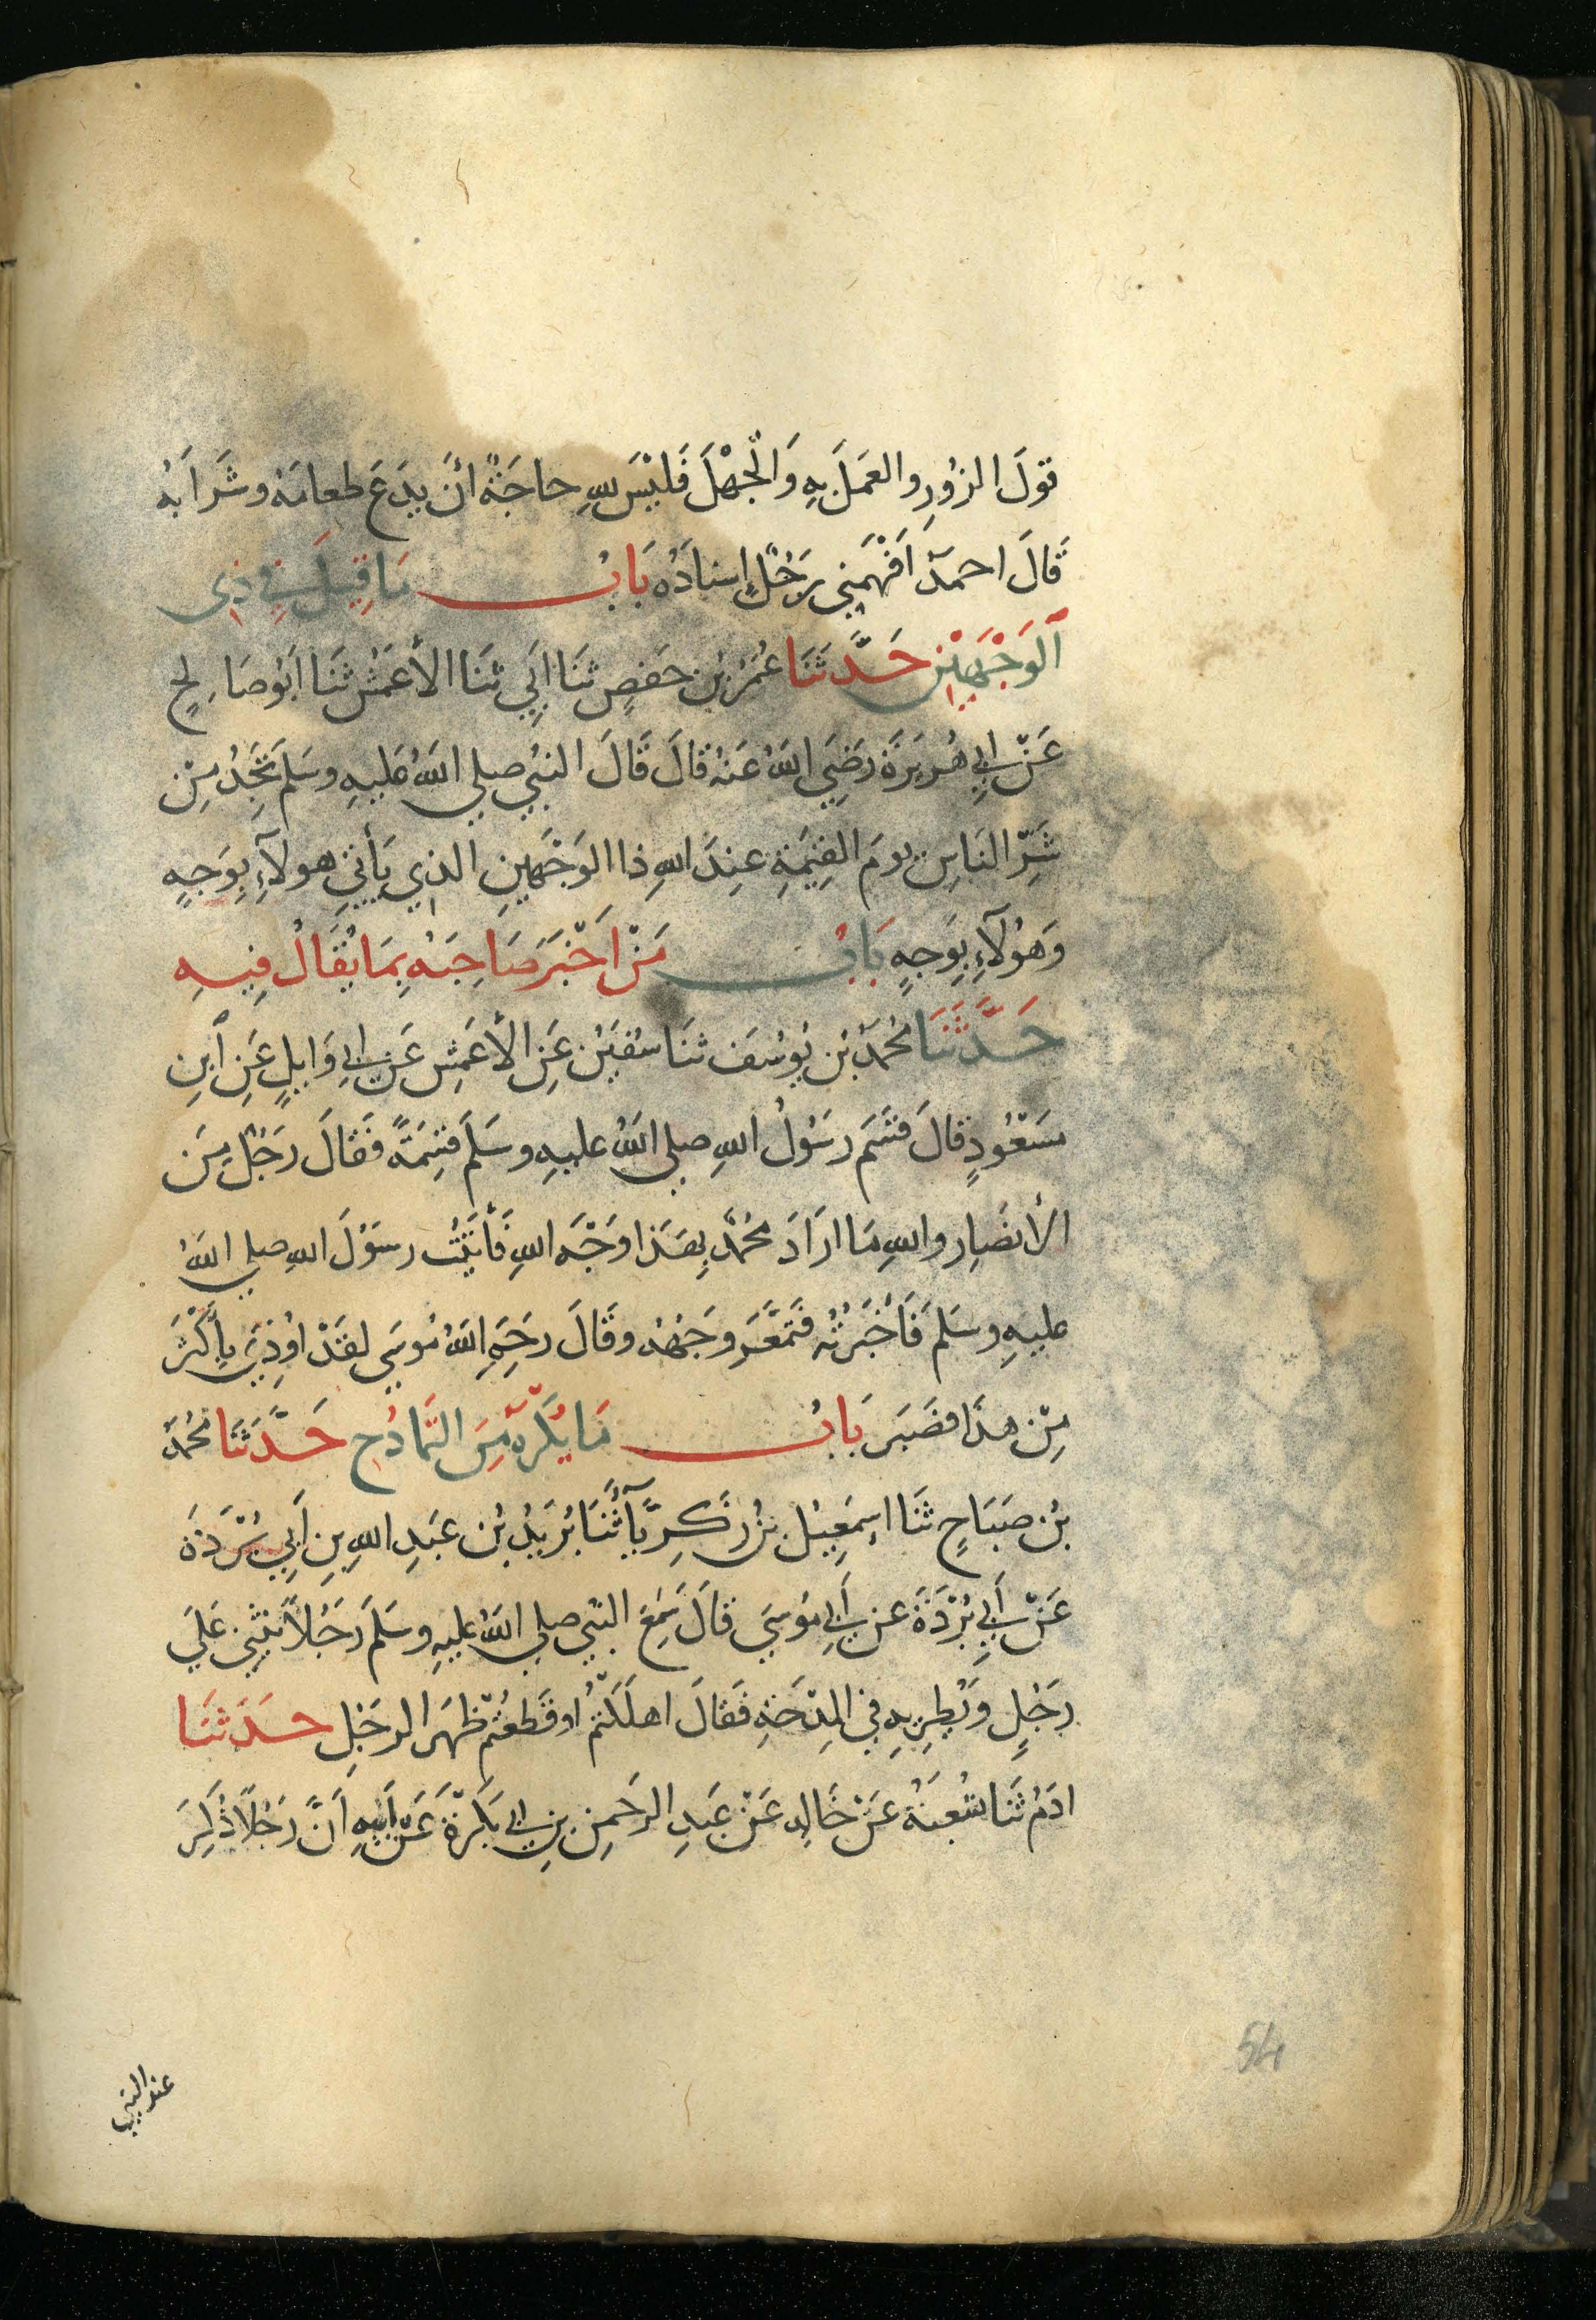 قولَ الزُورِ والعَمَلَ بِهِ وَالْجَهْلَ فَليْسَ للهِ حاجَةٌ أنَ يدَعَ طعامَهُ وشَرابَهُ
قَالَ احمدُ اَفْهَمَني رَجُلٌ اِسنادَهُ بَابُ مَا قِيلَ فِي ذِى
اَلوَجْهَيْنِ حَدَّثَنَا عُمَرُ بْن حَفصٍ ثنَا اَبِي ثنَا الأعمَشُ ثنَا اَبُو صَالِحٍ
عَنْ اَبِي هُرَيرَةَ رَضِيَ اللهُ عَنهُ قالَ قَالَ النبيُ صلي اللهُ عَليهِ وسَلمَ تَجِدُ مِنْ
شَرِّ النَاسِ يومَ القِيٰمَةِ عِندَ اللهِ ذا الوَجْهَينِ الذِي يَأتِي هولآءِ بِوَجهٍ
وَهوُلآءِ بِوَجهٍ بَابُ مَنْ اَخْبَرَ صَاحِبَهُ بِمَا يُقَالُ فِيهِ
حَدَّثَنَا مُحمَدُ بْن يُوسُفَ ثنَا سُفيٰنُ عَنِ الأعمَشِ عَن اَبِي وَايلٍ عَنِ اَبنِ
مَسعُودٍ قالَ قسَمَ رسَوُلُ اللهِ صلي اللهُ عليهِ وسَلمَ قسِمَةً فقَالَ رَجُلٌ مِنَ
الأنصَارِ واللهِ مَا ارَادَ مُحَمدٌ بِهَذا وَجْهَ اللهِ فَأتَيْتُ رسَوُلَ اللهِ صلي اللهُ
عليهِ وسَلمَ فَأخْبَرتُهُ فتَمَعَّرَ وجَهُهُ وقَالَ رحِمَ اللهُ مُوسَي لقَدْ اوُذِيَ بِأكْثَرَ
مِنْ هذَا فصَبَرَ بَابُ مَا يُكْرَهُ مِنَ التَمَادُحِ حَدَّثَنَا مُحَمدُ
بْن صَبَاحٍ ثنَا اِسمٰعِيلُ بْنُ زكَرِيَّآ ثَنَا بُرَيدُ بْن عبَدِ اللهِ بنِ اَبِي بُرْدَةَ
عَنْ اَبِي بُرْدَةَ عن اَبِي مُوسَي قالَ سَمِعَ النبي صلي اللهُ عليهِ وسَلمَ رَجُلاً يثنِي عَلَي
رَجُلٍ وَيُطرِيهِ فِي المِدْحَةِ فقَالَ اهلَكْتمُ او قَطعتُمْ ظهَرَ الرجُلِ حَدَثنَا
ادَمُ ثَنَا شُعبَةُ عَنْ خَالِدٍ عَنْ عَبدِ الرحَمنِ بنِ اَبِي بَكْرَةَ عَنْ اَبيهِ اَنَّ رَجُلاً ذُكِرَ
عند النبي
54